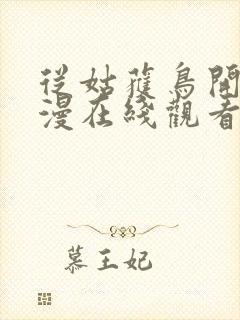 從姑蓷鳥開
漫在綫觀看
慕王妃